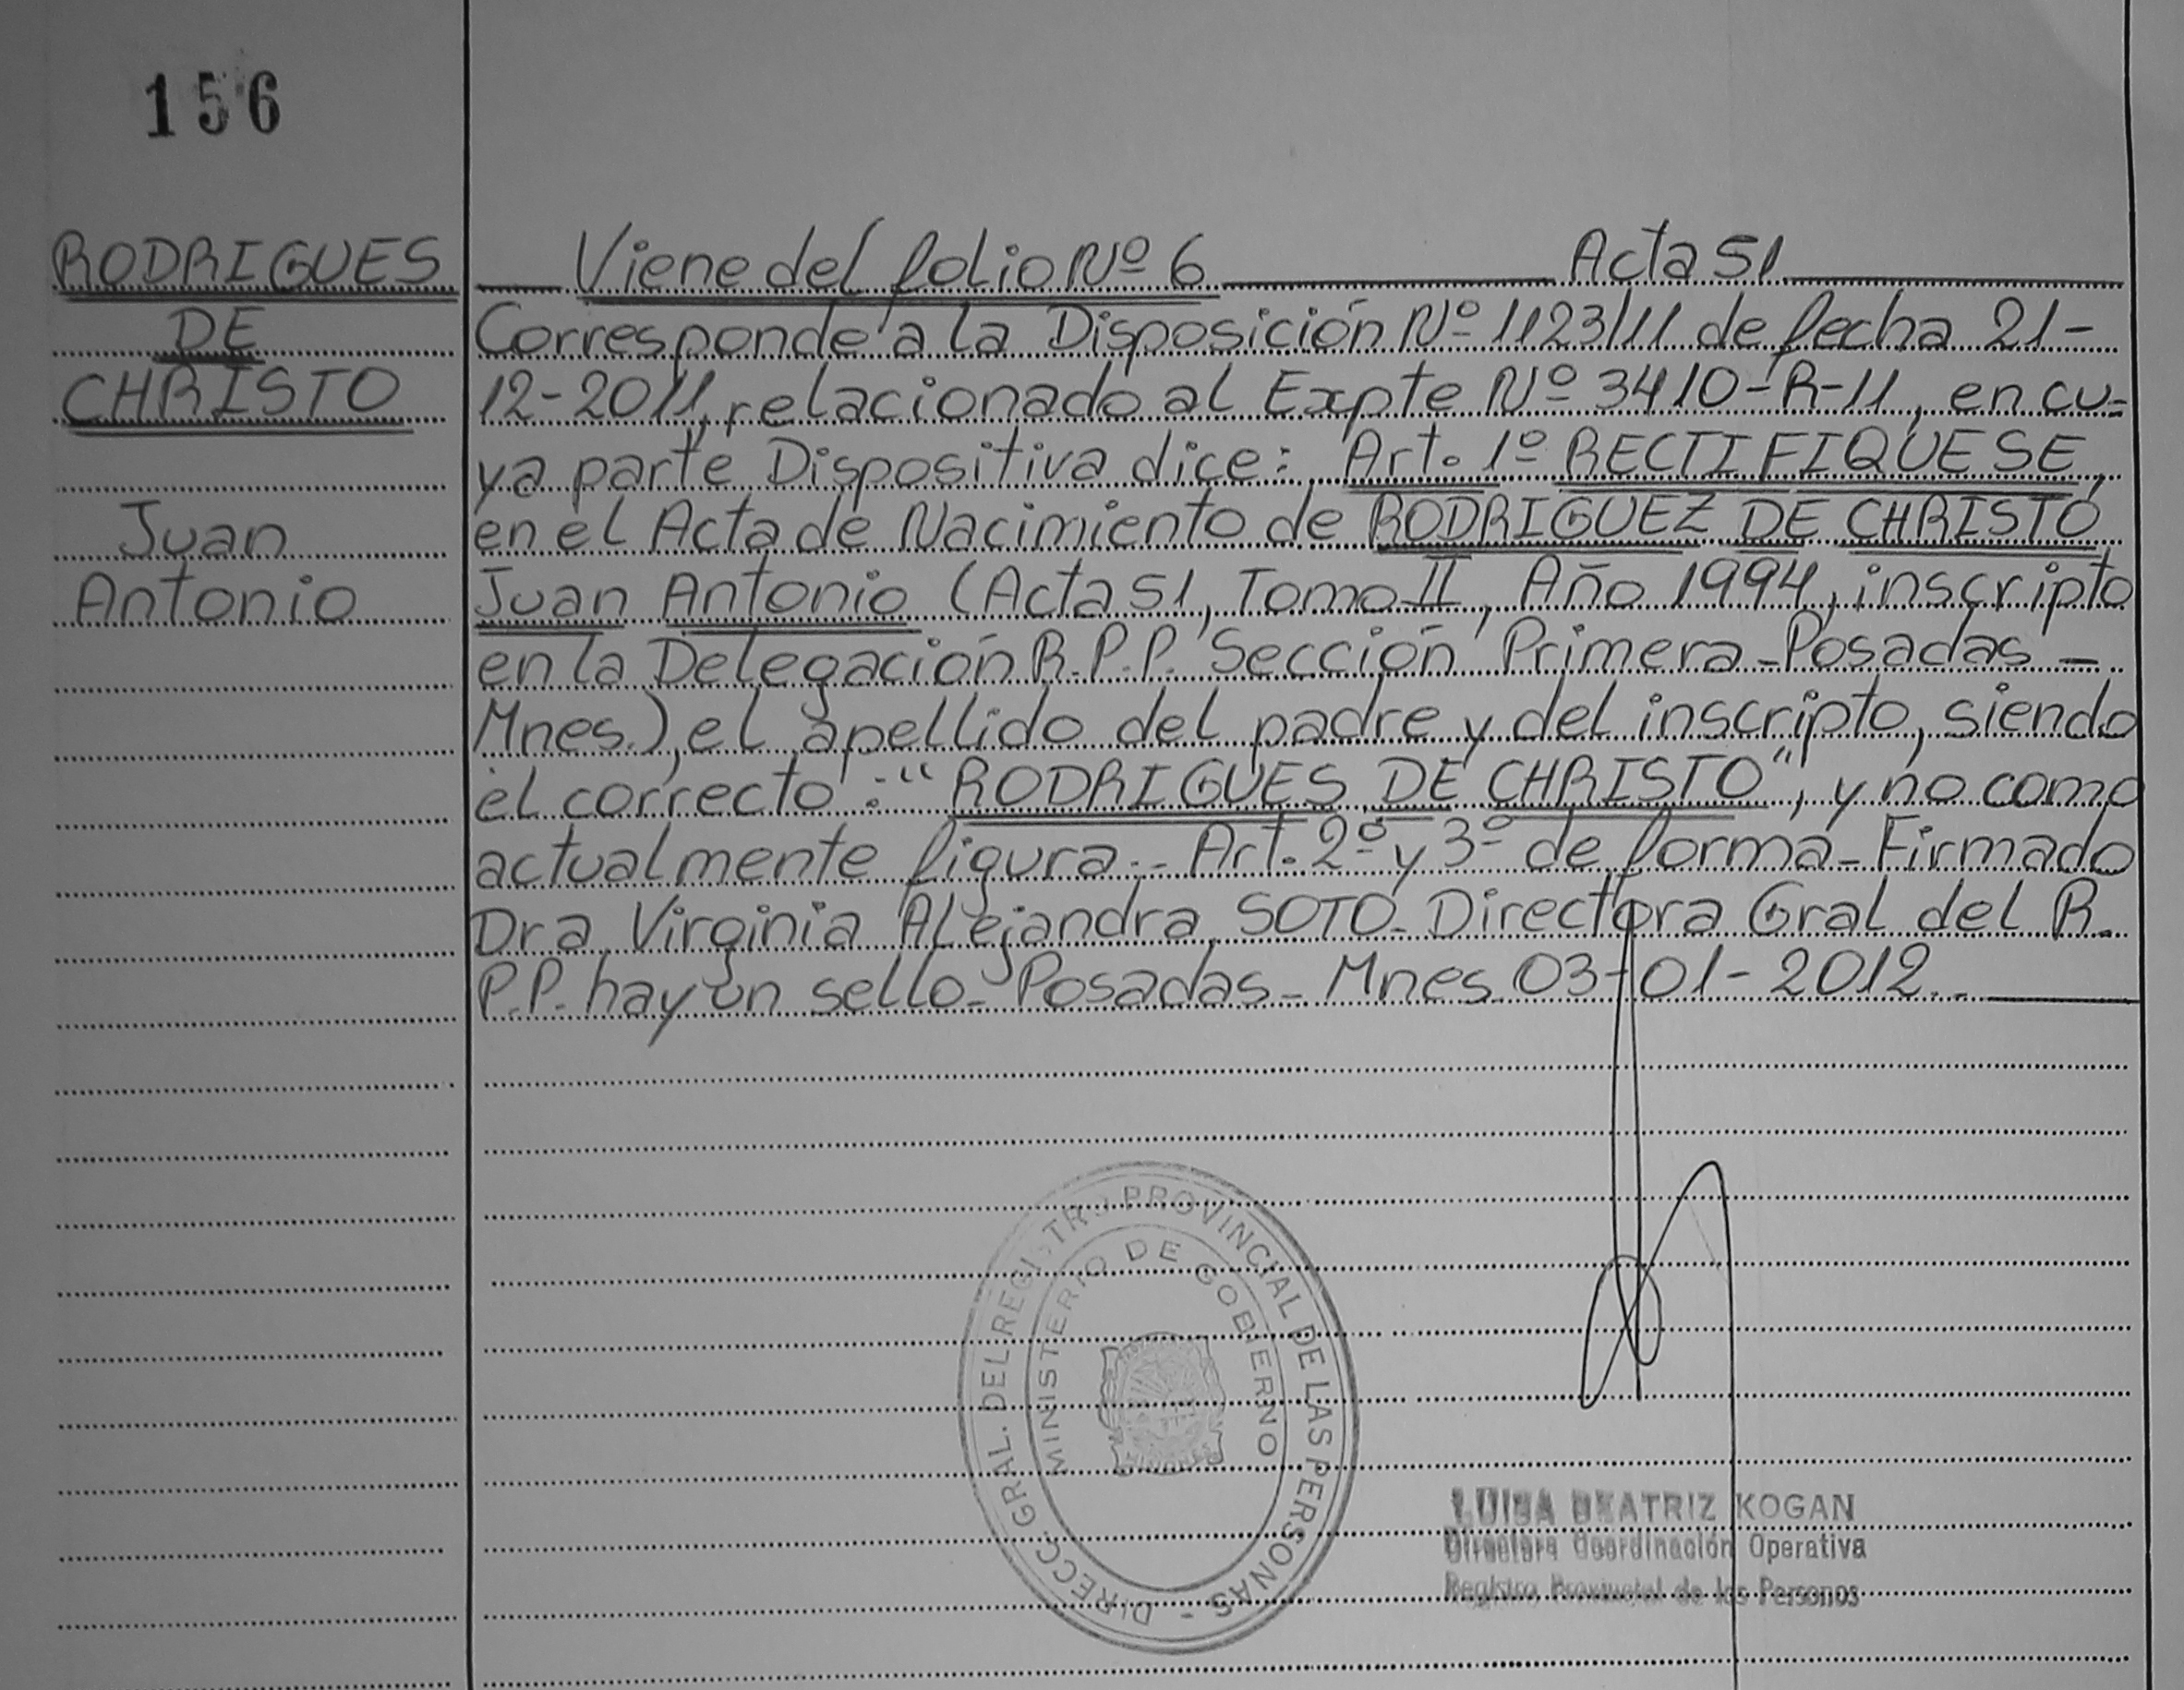 156
RODRIGUES
DE
CHRISTO
Juan
Antonio
Viene del folio Nº 6 Acta 51
Corresponde a la Disposición Nº 1123/11 de fecha 21-
12-2011, relacionado al Expte Nº 3410-R-11, en cu-
ya parte Dispositiva dice: Art. 1º RECTIFIQUESE,
en el Acta de Nacimiento de RODRIGUEZ DE CHRISTO
Juan Antonio (Acta 51, Tomo II, Año 1994, inscripto
en la Delegación R.P.P. Sección Primera - Posadas -
Mnes.), el apellido del padre y del inscripto, siendo
el correcto: "RODRIGUES DE CHRISTO", y no como
actualmente figura.- Art. 2º y 3º de forma - Firmado
Dra Virginia Alejandra SOTO - Directora Gral del R.
P.P. hay un sello - Posadas - Mnes 03-01-2012.-
DIRECC. GRAL. DEL REGISTRO PROVINCIAL DE LAS PERSONAS -
MINISTERIO DE GOBIERNO
MISIONES
LUISA BEATRIZ KOGAN
Directora Coordinación Operativa
Registro Provincial de las Personas